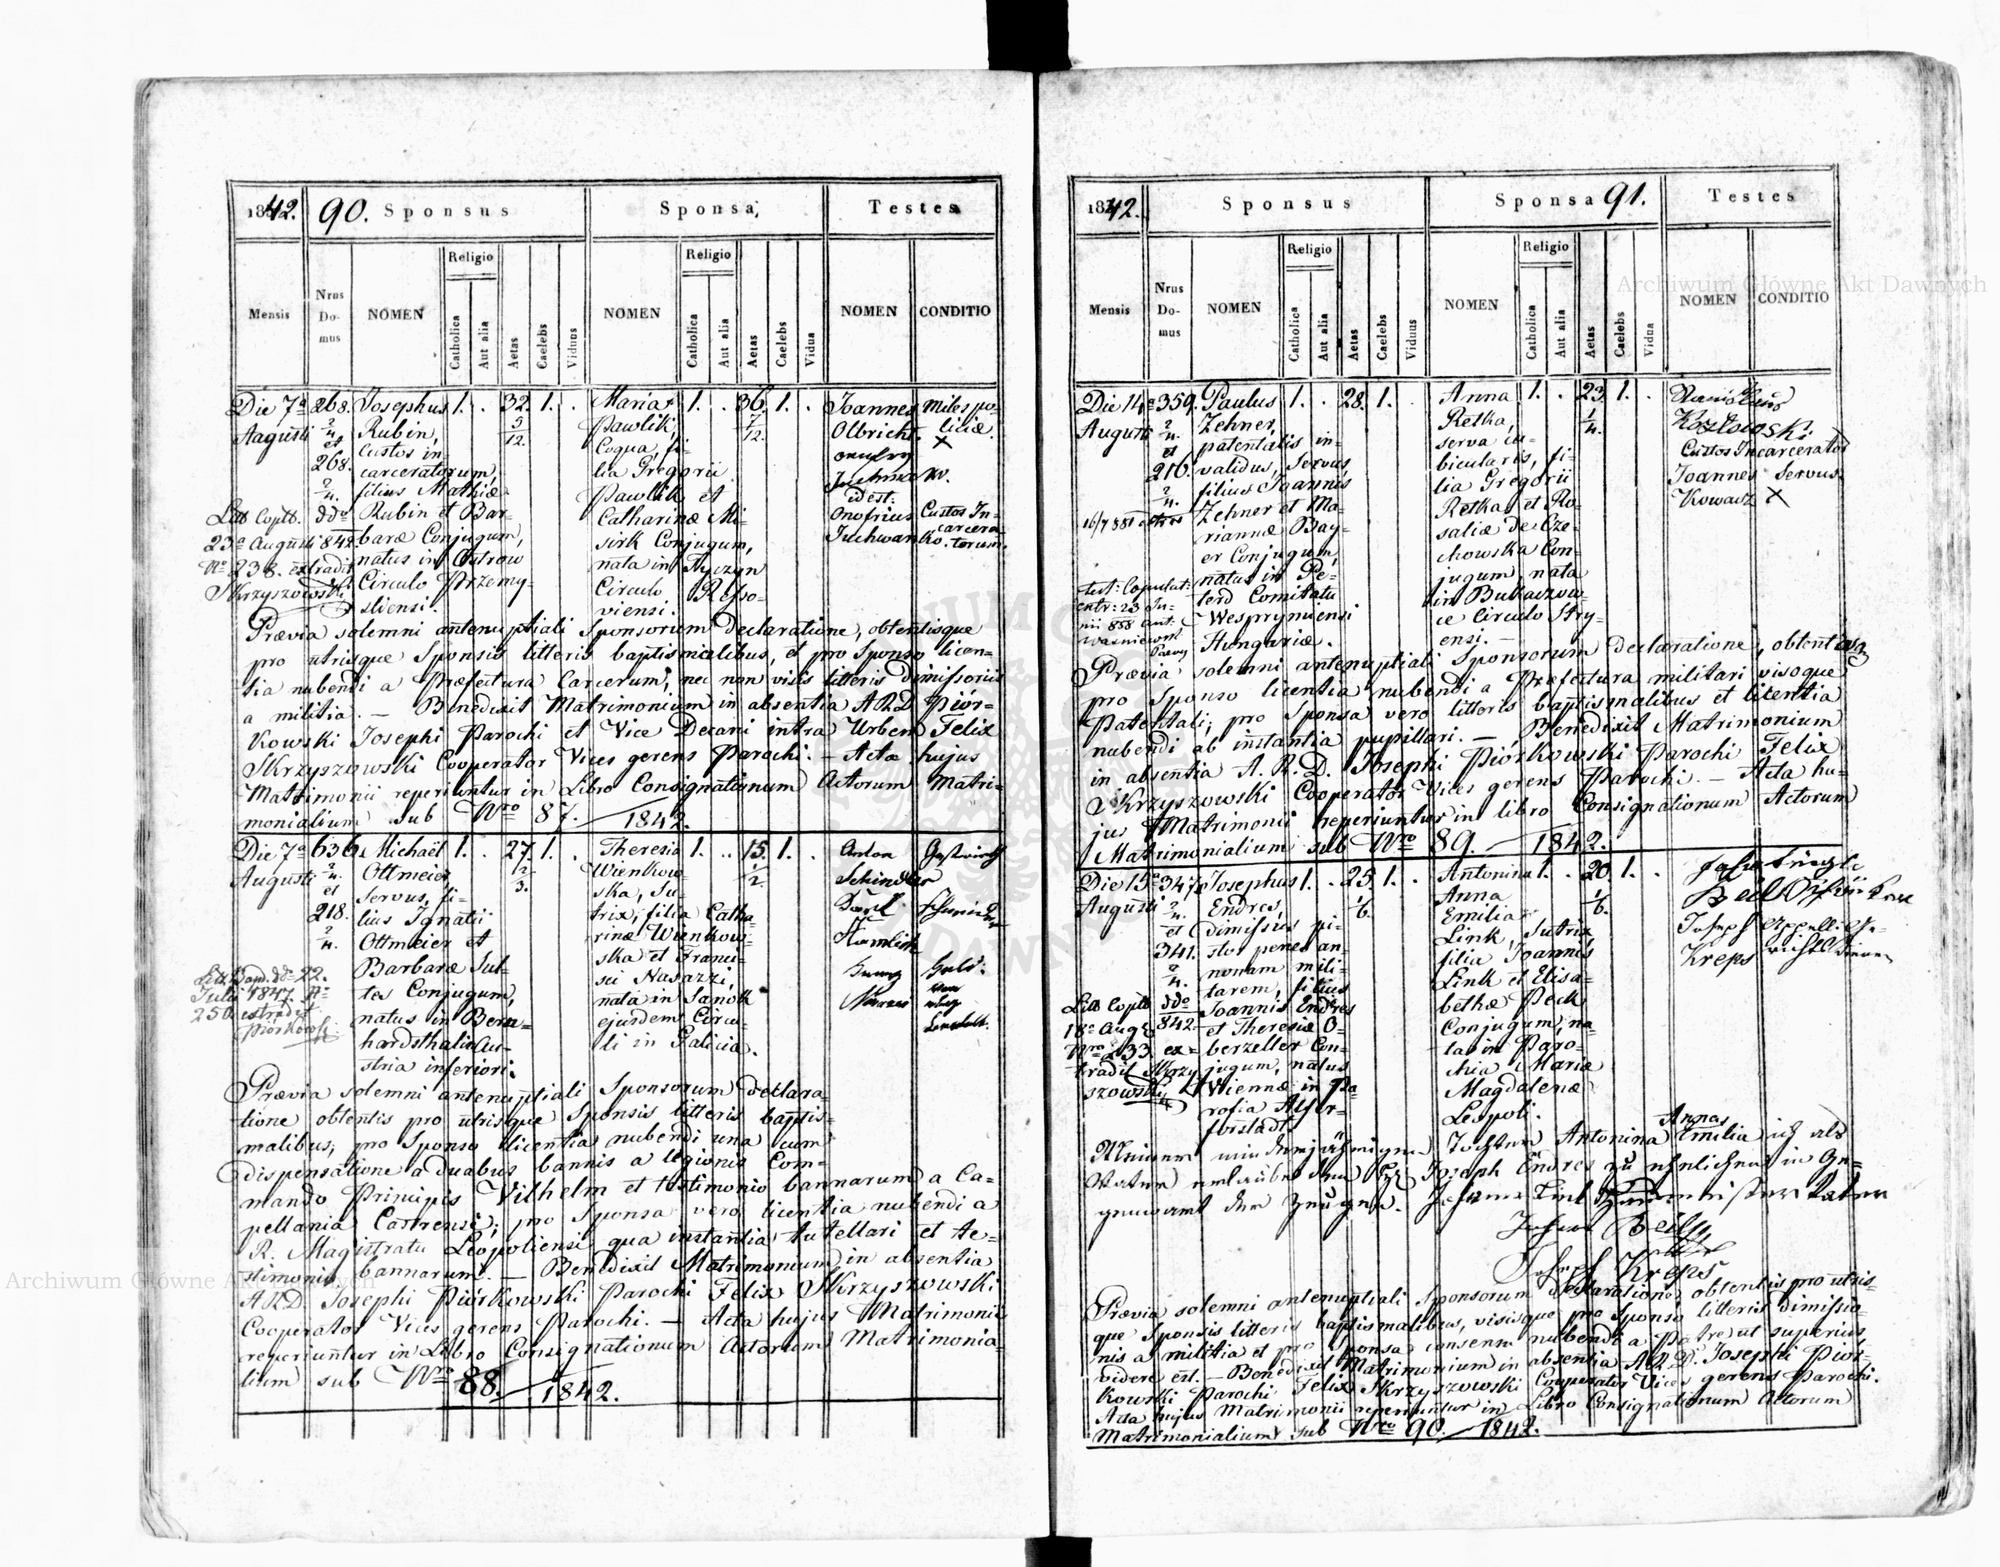 1842. 90. Sponsus Sponsa, Testes
Mensis Nrus Domus NOMEN Religio Catholica Aut alia Aetas Caelebs Viduus NOMEN Religio Catholica Aut alia Aetas Caelebs Vidua NOMEN CONDITIO
Die 7a
Augusti
268.
2/4.
et
268.
2/4.
Josephus
Rubin,
Custos in-
carceratorum,
filius Mathiæ
Rubin et Bar-
baræ Conjugum,
natus in Ostrow
Circulo Przemy-
sliensi.
1. . 32. 1. .
5/12.
Maria
Pawlik,
Coqua, fi-
lia Gregorii
Pawlik et
Catharinæ Mi-
sirk Conjugum,
nata in Tyczyn
Circulo Resso-
viensi.
1. . 36. 1. .
7/12.
Joannes miles po-
Olbricht. liciæ.
X
idest.
Onofrius Custos In-
carcera-
torum.
Litt Coptt. ddo
23a Augusti 842.
No 238. extradit
Skrzyszowski
Prævia solemni antenuptiali Sponsorum declaratione, obtentisque
pro utrisque Sponsis litteris baptismalibus, et pro Sponso licen-
tia nubendi a Præfectura Carcerum, nec non visis litteris dimissoriis
a militia. — Benedixit Matrimonium in absentia A.R.D. Piór-
kowski Josephi Parochi et Vice Decani intra Urbem Felix
Skrzyszowski Cooperator Vices gerens Parochi. — Acta hujus
Matrimonii reperiuntur in Libro Consignationum Actorum Matri-
monialium sub Nro 87. 1842.
Die 7a
Augusti
636.
2/4.
et
218.
2/4.
Michael
Ottmeier,
Servus, fi-
lius Ignatii
Ottmeier et
Barbaræ Sul-
tes Conjugum,
natus in Bern-
hardsthal in Au-
stria inferiori.
1. . 27. 1. .
Theresia
Wienkow-
ska, Su-
trix, filia Catha-
rinæ Wienkow-
ska et Franci-
sci Nasazzi,
nata in Sanok
ejusdem Circu-
li in Galicia.
1. . 15. 1. .
1/2.
Anton Gastwirth
Schindler
Litt Bapt. ddo 22.
Julii 1847. No
250. extradit
Piórkowski
Prævia solemni antenuptiali Sponsorum declara-
tione obtentis pro utrisque Sponsis litteris baptis-
malibus; pro Sponso licentia nubendi una cum
dispensatione a duabus bannis a legionis Com-
mando Principis Wilhelm et testimonio bannarum a Ca-
pellania Castrensi; pro Sponsa vero licentia nubendi a
R. Magistratu Leopoliensi qua instantia tutellari et te-
stimonio bannarum. — Benedixit Matrimonium in absentia
A.R.D. Josephi Piórkowski Parochi Felix Skrzyszowski
Cooperator Vices gerens Parochi. — Acta hujus Matrimonii
reperiuntur in Libro Consignationum Actorum Matrimonia-
lium sub Nro 88. 1842.
1842. Sponsus Sponsa 91. Testes
Mensis Nrus Domus NOMEN Religio Catholica Aut alia Aetas Caelebs Viduus NOMEN Religio Catholica Aut alia Aetas Caelebs Vidua NOMEN CONDITIO
Die 14a
Augusti
359.
2/4.
et
216.
2/4.
Paulus
Zehner,
patentalis in-
validus, Servus,
filius Joannis
Zehner et Ma-
riannæ Bay-
er Conjugum,
natus in Pe-
terd Comitatu
Wesprymiensi
Hungariæ.
1. . 28. 1. .
Anna
Retka,
serva cu-
bicularis, fi-
lia Gregorii
Retka et Ro-
saliæ de Cze-
chowska Con-
jugum, nata
in Bukaczow-
ce Circulo Stry-
ensi. —
1. . 23. 1. .
1/4.
Stanislaus
Kozłowski
Custos Incarcerator
Joannes Servus.
Kowacz X
16/7 881 extras
Prævia solemni antenuptiali Sponsorum declaratione, obtentaque
pro Sponso licentia nubendi a Præfectura militari visoque
Patentali; pro Sponsa vero litteris baptismalibus et licentia
nubendi ab instantia pupillari. — Benedixit Matrimonium
in absentia A.R.D. Josephi Piórkowski Parochi Felix
Skrzyszowski Cooperator Vices gerens Parochi. — Acta hu-
jus Matrimonii reperiuntur in libro Consignationum Actorum
Matrimonialium sub Nro 89. 1842.
Die 15a
Augusti
347.
2/4.
et
341.
2/4.
Josephus
Endres,
dimissus pi-
stor penes an-
nonam mili-
tarem, filius
Joannis Endres
et Theresiæ O-
berzeller Con-
jugum, natus
Wiennæ in Pa-
rofia Alser-
forstadt.
1. . 25. 1. .
1/6.
Antonina
Anna
Emilia
Link, Sutrix,
filia Joannis
Link et Elisa-
bethæ Peck
Conjugum, na-
ta in Paro-
chia Mariæ
Magdalenæ
Leopoli.
1. . 20. 1. .
1/6.
Joseph Appell: Ge-
Kreps richtsdiener
Litt Coptt ddo
18a Aug. 842.
Nro 233. ex-
tradit Skrzy-
szowski
Meiner minderjährigen Tochter Antonina Annas Emilia ich als
Vater erlaube dem Joseph Endres zu ehelichen in Ge-
genwart der Zeugen.
Joseph Kreps
Prævia solemni antenuptiali Sponsorum declaratione, obtentis pro utris-
que Sponsis litteris baptismalibus, visisque pro Sponso litteris dimisso-
riis a militia et pro Sponsa consensu nubendi a Patre, ut superius
videre est. — Benedixit Matrimonium in absentia A.R.D. Josephi Piór-
kowski Parochi Felix Skrzyszowski Cooperator Vices gerens Parochi.
Acta hujus Matrimonii reperiuntur in Libro Consignationum Actorum
Matrimonialium sub Nro 90. 1842.
Archiwum Główne Akt Dawnych
Archiwum Główne Akt Dawnych